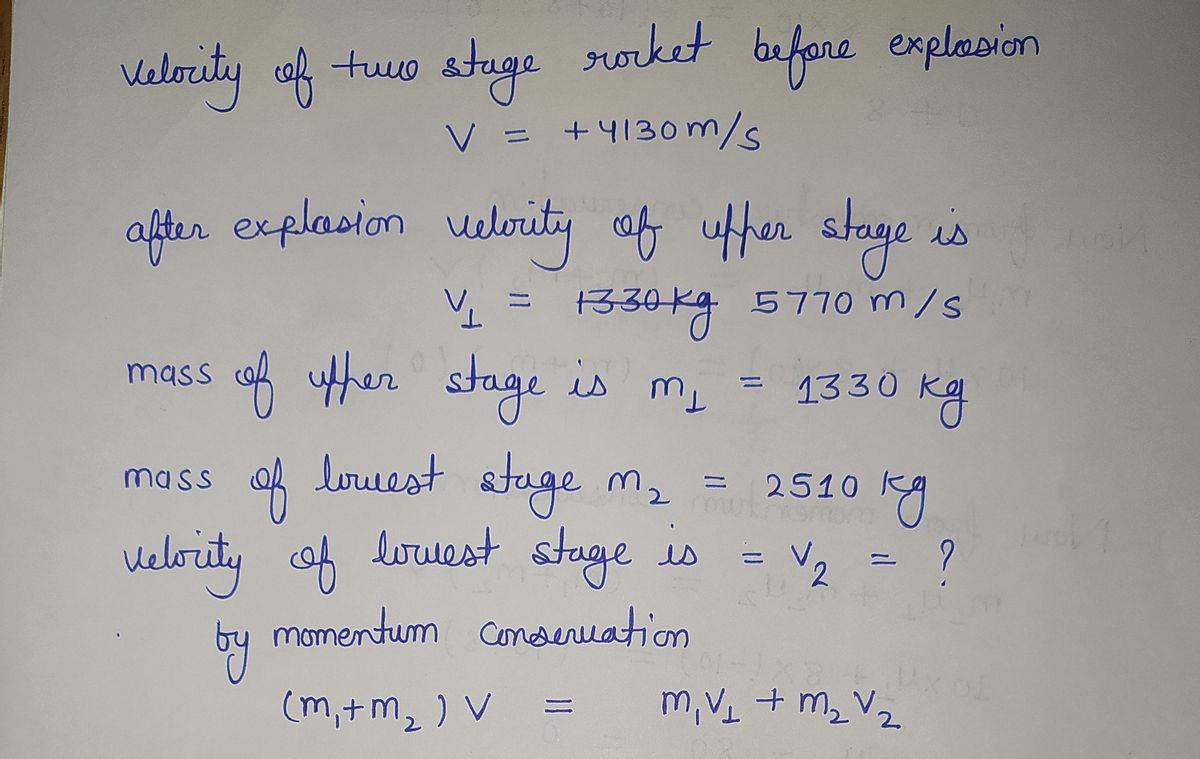 velocity of two stage rocket before explosion
V = +4130 m/s
after explosion velocity of upper stage is
V₁ = 1330 kg 5770 m/s
mass of upper stage is m₁ = 1330 kg
mass of lowest stage m₂ = 2510 kg
velocity of lowest stage is = V₂ = ?
by momentum conservation
(m₁+m₂) V = m₁V₁ + m₂V₂